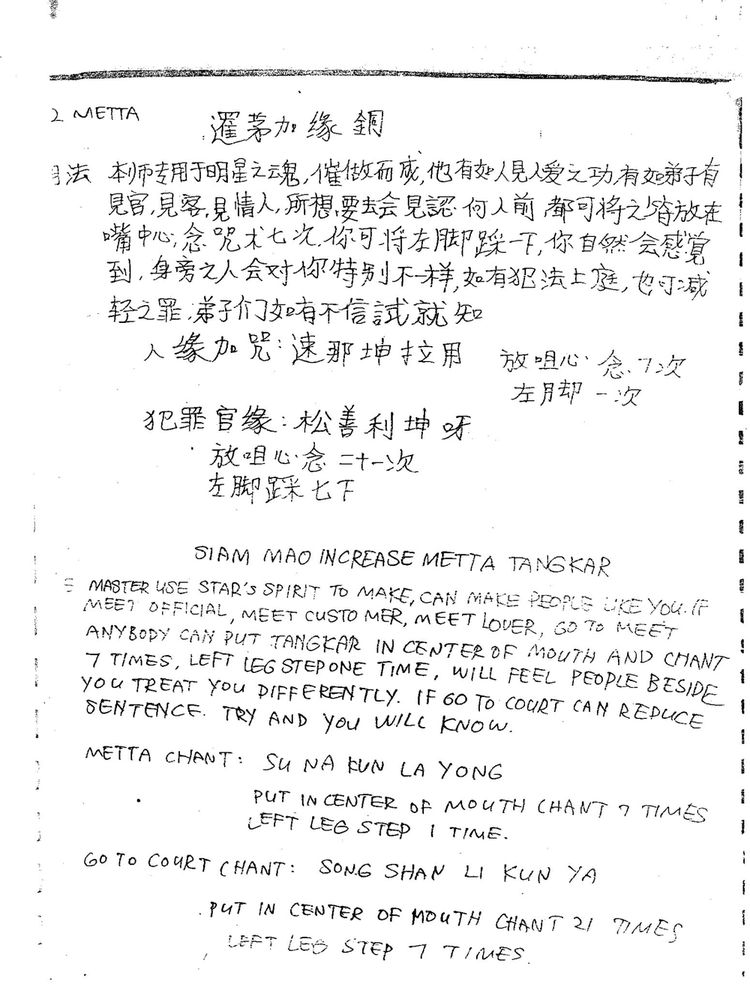 2 METTA
暹茅加缘銅
法 本师专用于明星之魂,催做而成,他有如人見人爱之功,有如弟子有
見官,見客,見情人,所想要去会見認何人前 都可将之 放在
嘴中心,念咒术七次,你可将左脚踩一下,你自然会感覚
到,身旁之人会对你特别不一样,如有犯法上庭,也可减
轻之罪,弟子们如有不信試就知
人缘加咒:速那坤拉用 放咀心 念 7次
左月却 一次
犯罪官缘:松善利坤呀
放咀心念 二十一次
左脚踩七下
SIAM MAO INCREASE METTA TANGKAR
MASTER USE STAR'S SPIRIT TO MAKE, CAN MAKE PEOPLE LIKE YOU. IF
MEET OFFICIAL, MEET CUSTOMER, MEET LOVER, GO TO MEET
ANYBODY CAN PUT TANGKAR IN CENTER OF MOUTH AND CHANT
7 TIMES, LEFT LEG STEP ONE TIME, WILL FEEL PEOPLE BESIDE
YOU TREAT YOU DIFFERENTLY. IF GO TO COURT CAN REDUCE
SENTENCE. TRY AND YOU WILL KNOW.
METTA CHANT: SU NA KUN LA YONG
PUT IN CENTER OF MOUTH CHANT 7 TIMES
LEFT LEG STEP 1 TIME.
GO TO COURT CHANT: SONG SHAN LI KUN YA
PUT IN CENTER OF MOUTH CHANT 21 TIMES
LEFT LEG STEP 7 TIMES.